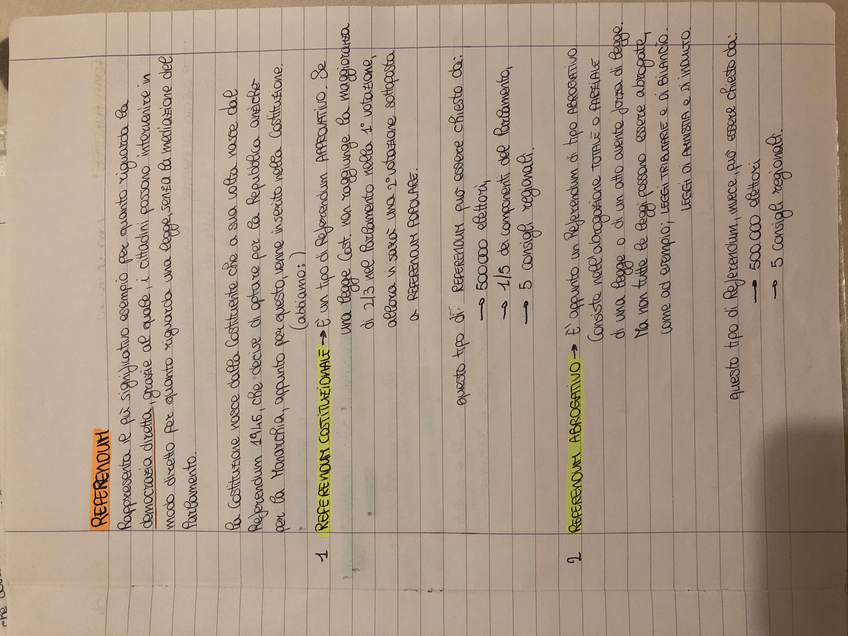 REFERENDUM
Rappresenta il più significativo esempio per quanto riguarda la
democrazia diretta, grazie al quale, i cittadini possono intervenire in
modo diretto per quanto riguarda una legge, senza la mediazione del
Parlamento.
La Costituzione nasce dalla Costituente che a sua volta nasce dal
Referendum 1946, che decise di optare per la Repubblica anziché
per la Monarchia, appunto per questo, venne inserito nella Costituzione.
(abbiamo:)
1 REFERENDUM COSTITUZIONALE → È un tipo di Referendum APPROVATIVO. Se
una legge Cost. non raggiunge la maggioranza
di 2/3 nel Parlamento nella 1° votazione,
allora vi sarà una 2° votazione sottoposta
a REFERENDUM POPOLARE.
questo tipo di REFERENDUM può essere chiesto da:
→ 500.000 elettori,
→ 1/5 dei componenti del Parlamento,
→ 5 consigli regionali.
2 REFERENDUM ABROGATIVO → E' appunto un Referendum di tipo ABROGATIVO
Consiste nell'abrogazione TOTALE O PARZIALE
di una legge o di un atto avente forza di legge.
Ma non tutte le leggi possono essere abrogate,
come ad esempio, LEGGI TRIBUTARIE E DI BILANCIO.
LEGGI DI AMNISTIA E DI INDULTO.
questo tipo di Referendum, invece, può essere chiesto da:
→ 500.000 elettori
→ 5 Consigli regionali.